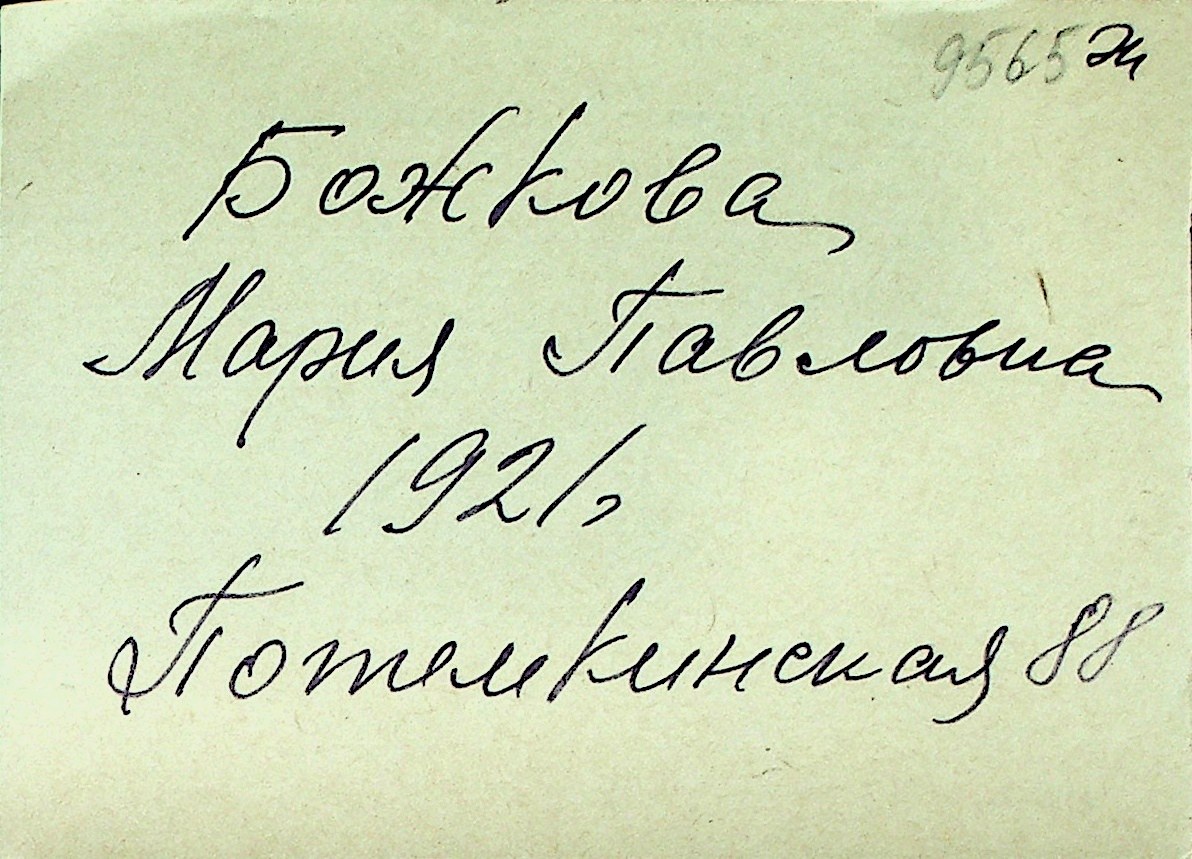 9565 ж
Божкова
Мария Павловна
1921г
Потемкинская 88